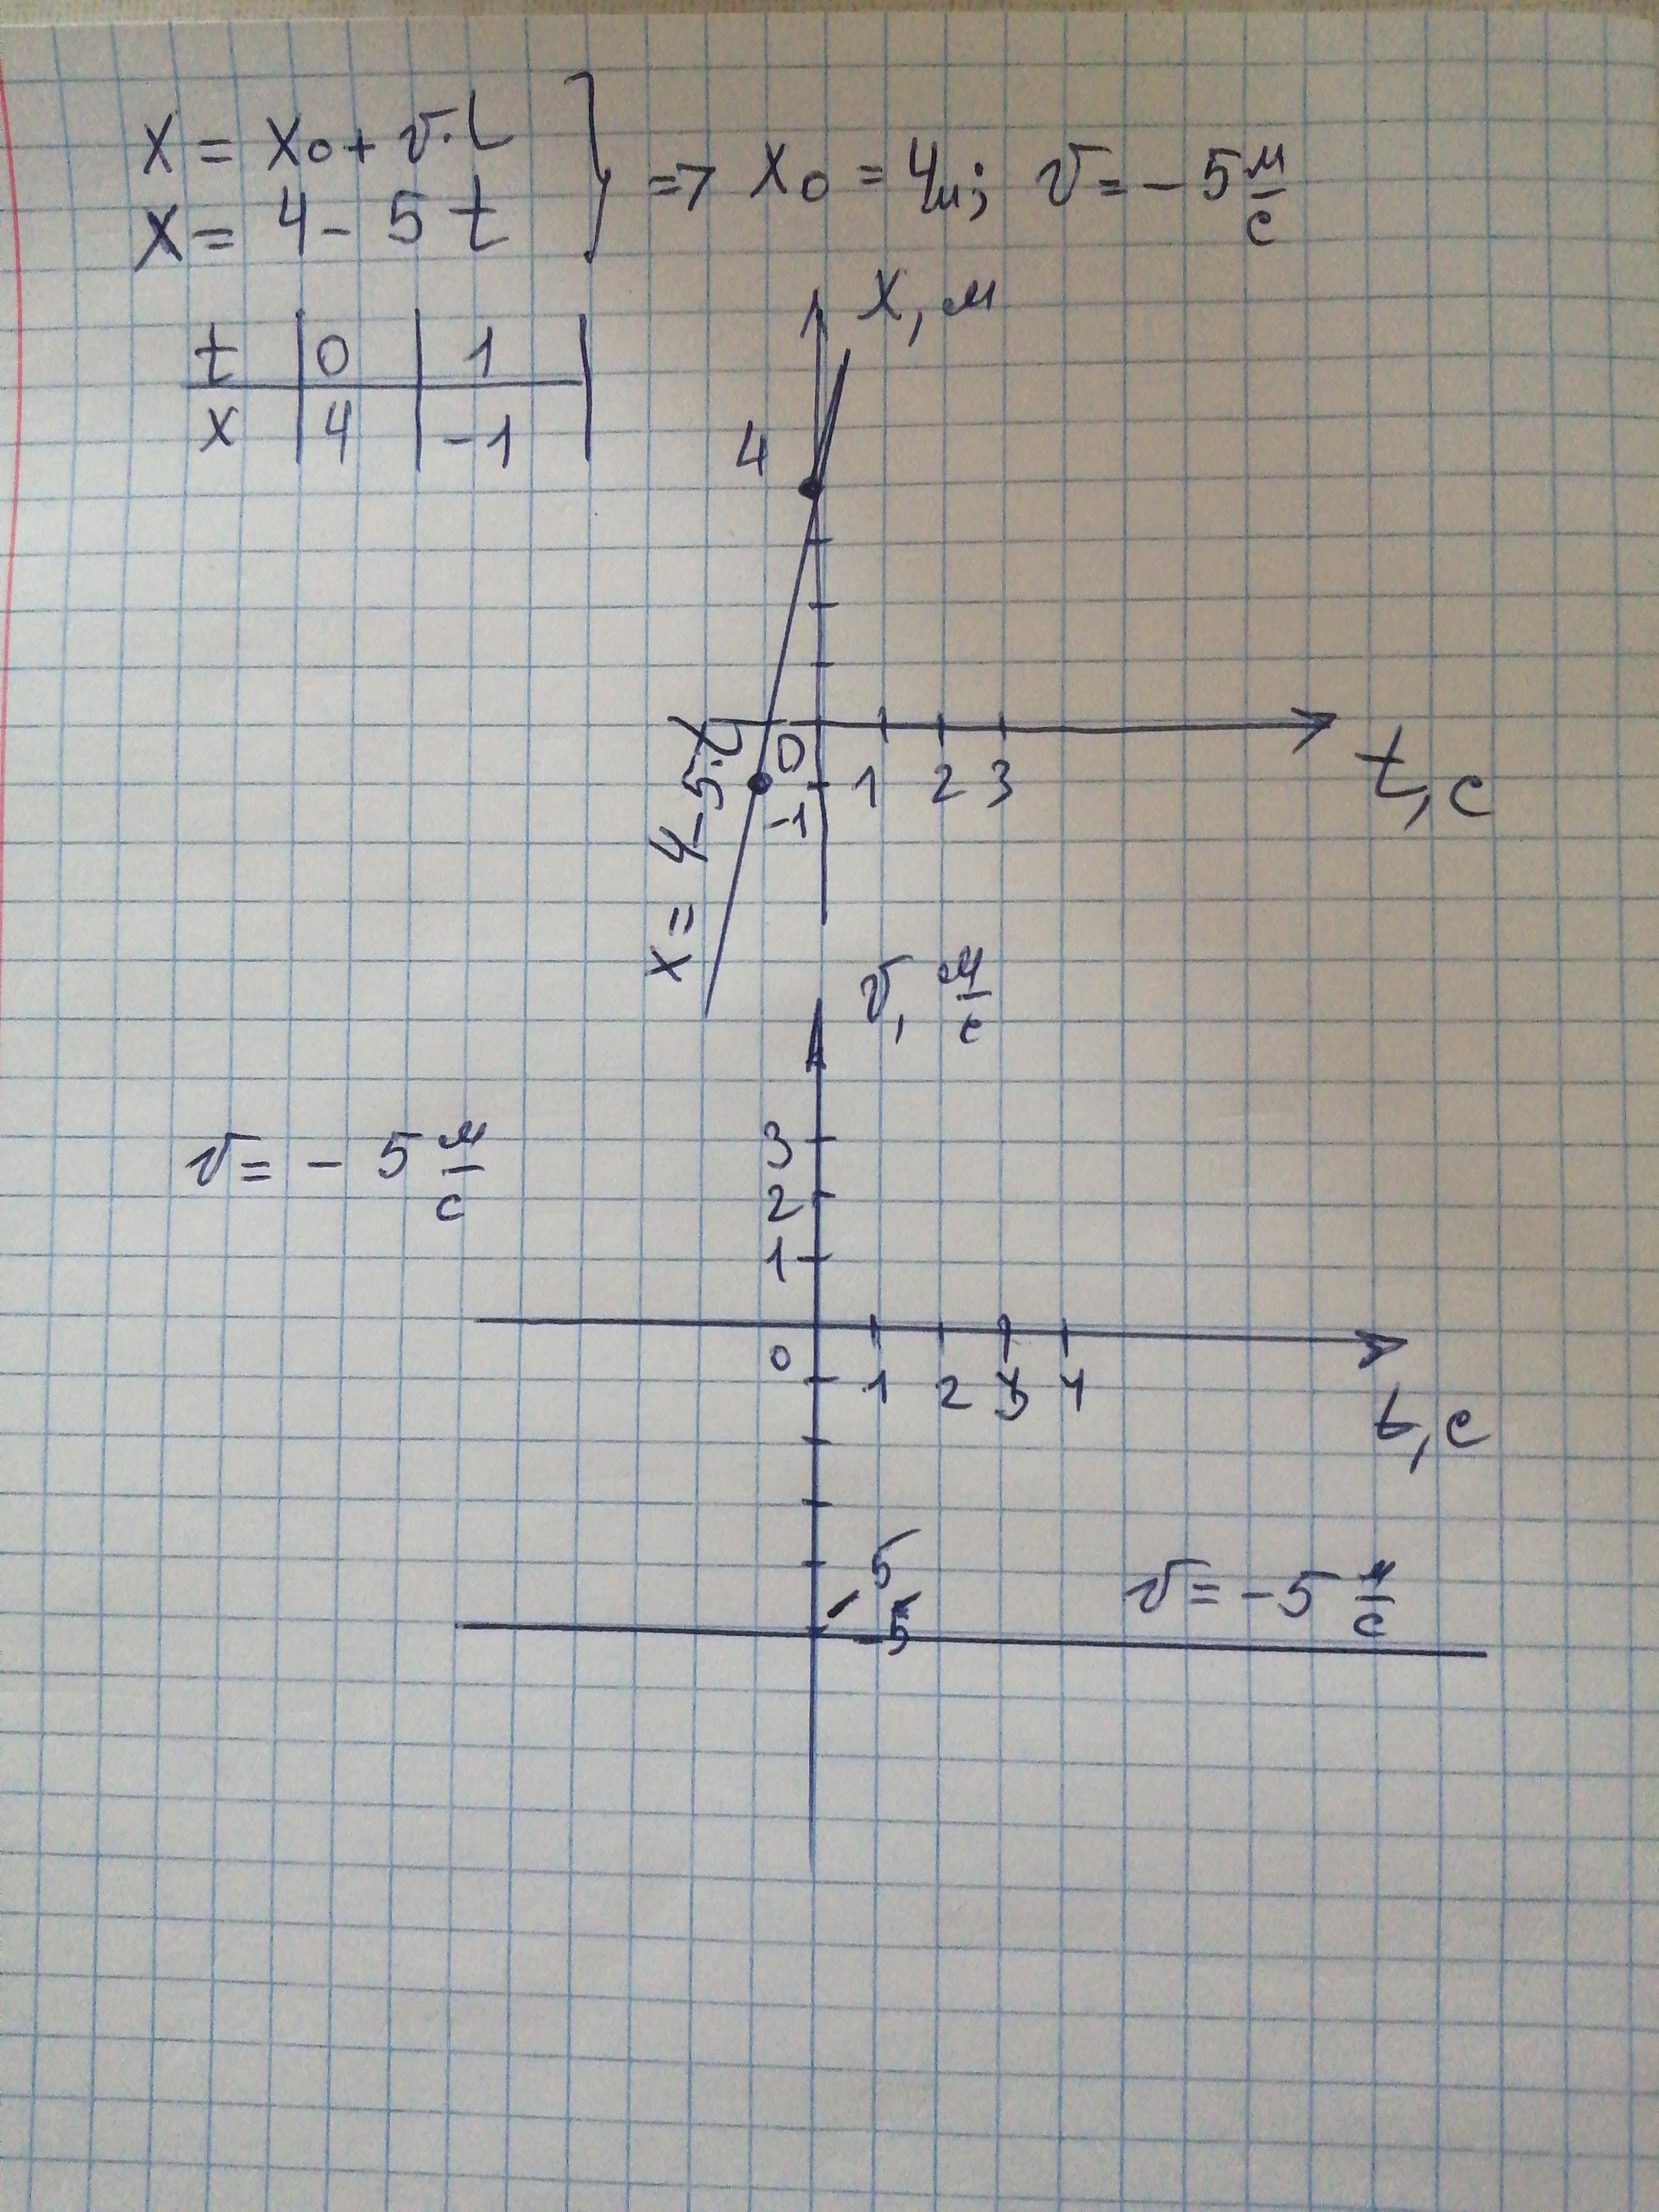 x = x₀ + v·t
x = 4 - 5 t
=> x₀ = 4м; v = - 5 м/с
t | 0 | 1
x | 4 | -1
x, м
4
0
-1
1 2 3
t, с
x = 4 - 5·t
v, м/с
v = - 5 м/с
3
2
1
0
1 2 3 4
t, с
5
-5
v = -5 м/с